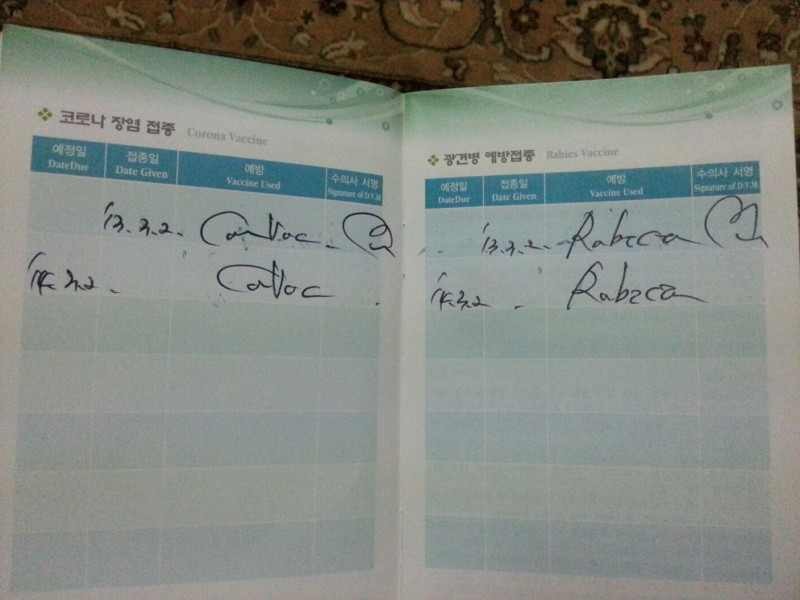 코로나 장염 접종 Corona Vaccine
예정일 접종일 예방 수의사 서명
DateDue Date Given Vaccine Used Signature of D.V.M
'13.3.2.
'14.3.2.
광견병 예방접종 Rabies Vaccine
예정일 접종일 예방 수의사 서명
DateDue Date Given Vaccine Used Signature of D.V.M
'13.3.2. Rabican
'14.3.2. Rabican